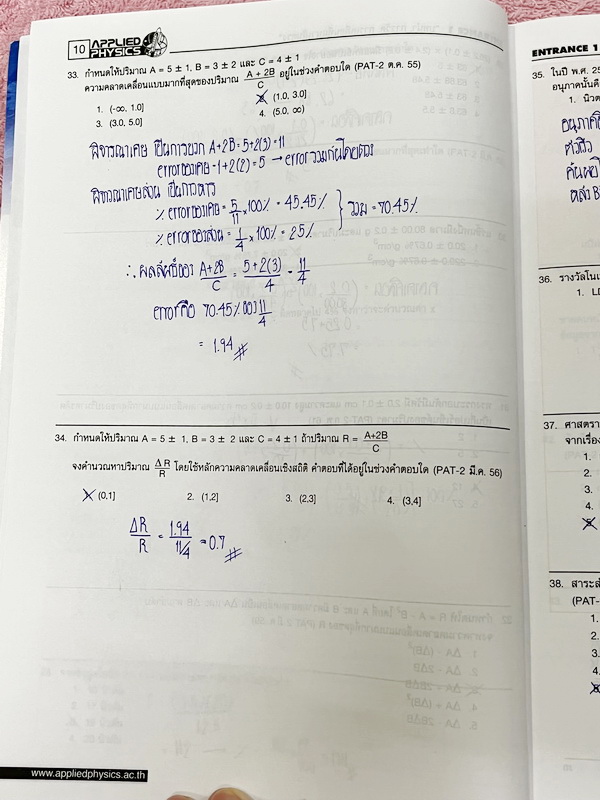 10 APPLIED PHYSICS
33. กำหนดให้ปริมาณ A = 5 ± 1, B = 3 ± 2 และ C = 4 ± 1
ความคลาดเคลื่อนแบบมากที่สุดของปริมาณ (A + 2B)/C อยู่ในช่วงคำตอบใด (PAT-2 ต.ค. 55)
1. (-∞, 1.0]
2. (1.0, 3.0]
3. (3.0, 5.0]
4. (5.0, ∞)
พิจารณาเศษ เป็นการบวก A+2B = 5+2(3) = 11
error ของเศษ = 1+2(2) = 5 → error รวมกันโดยตรง
พิจารณาเศษส่วน เป็นการหาร
% error ของเศษ = 5/11 × 100% = 45.45%
% error ของส่วน = 1/4 × 100% = 25%
รวม = 70.45%
∴ ผลลัพธ์ของ (A+2B)/C = (5+2(3))/4 = 11/4
error คือ 70.45% ของ 11/4
= 1.94 #
34. กำหนดให้ปริมาณ A = 5 ± 1, B = 3 ± 2 และ C = 4 ± 1 ถ้าปริมาณ R = (A+2B)/C
จงคำนวณหาปริมาณ ΔR/R โดยใช้หลักความคลาดเคลื่อนเชิงสถิติ คำตอบที่ได้อยู่ในช่วงคำตอบใด (PAT-2 มี.ค. 56)
1. (0,1]
2. (1,2]
3. (2,3]
4. (3,4]
ΔR/R = 1.94/(11/4) = 0.7 #
www.appliedphysics.ac.th
ENTRANCE 1
35. ในปี พ.ศ. 25
อนุภาคนั้นคื
1. นิวต
36. รางวัลโนเ
1. LI
37. ศาสตรา
จากเรื่อง
1.
2.
3.
4.
38. สาระสํ
(PAT-
1.
2.
3.
4.